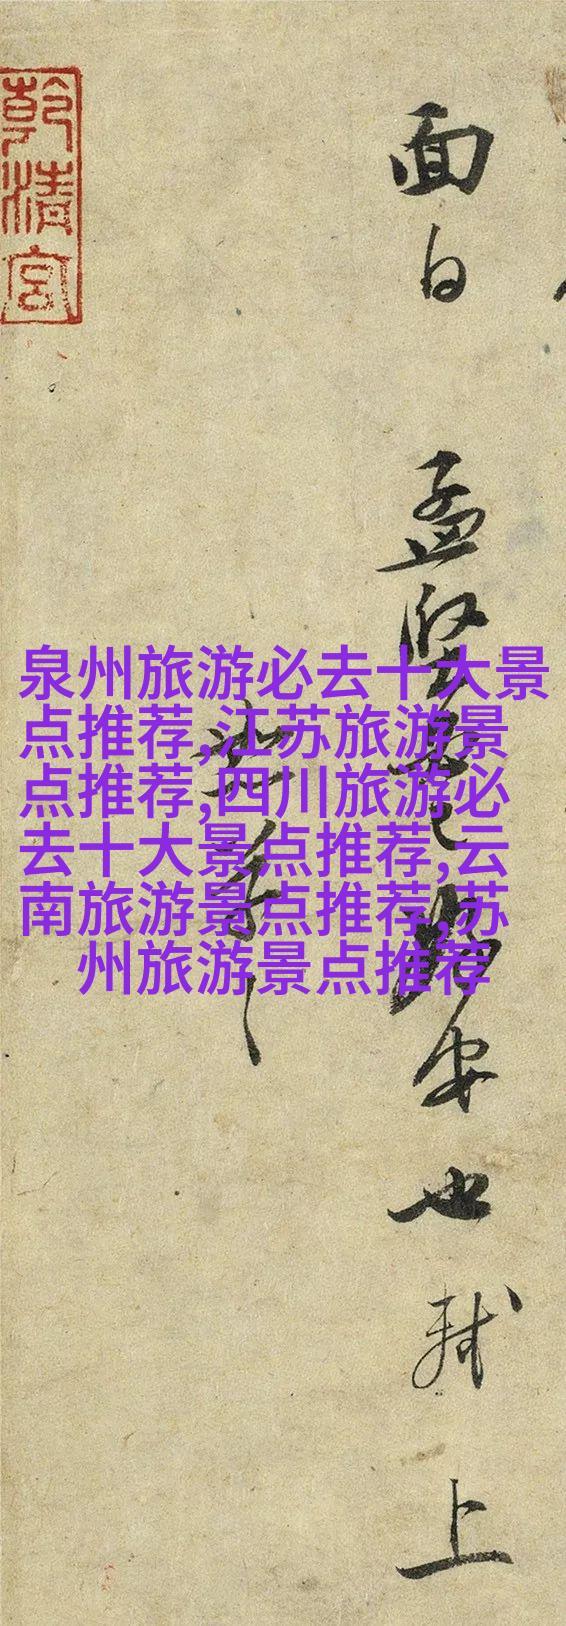 面白 孟堅 安也 軾 上
乾清宮
泉州旅游必去十大景
点推荐,江苏旅游景
点推荐,四川旅游必
去十大景点推荐,云
南旅游景点推荐,苏
州旅游景点推荐